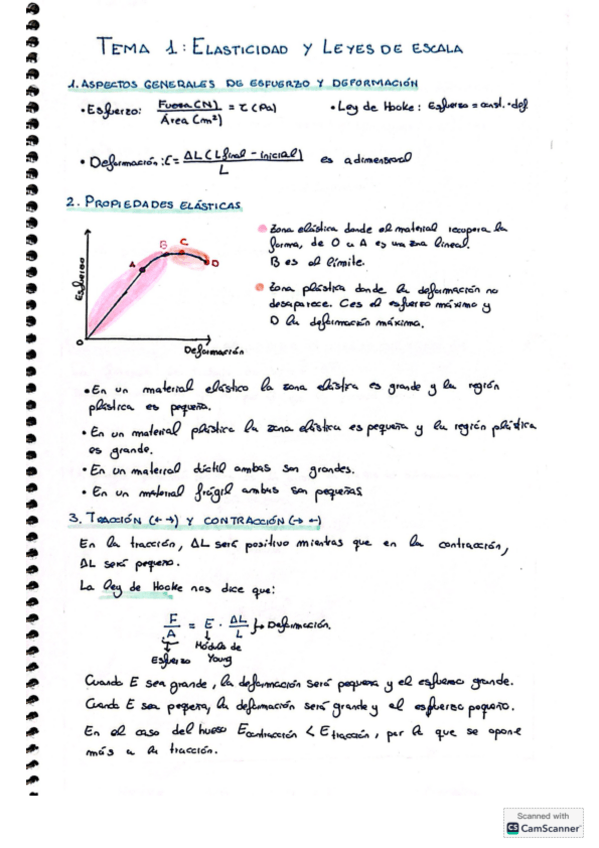 TEMA 1: ELASTICIDAD Y LEYES DE ESCALA
1. ASPECTOS GENERALES DE ESFUERZO Y DEFORMACIÓN
• Esfuerzo: Fuerza (N) / Área (m²) = τ (Pa)
• Ley de Hooke: Esfuerzo = const. · def
• Deformación: ε = ΔL (L final - inicial) / L es adimensional
2. PROPIEDADES ELÁSTICAS
Zona elástica donde el material recupera la
forma, de O a A es una zona lineal.
B es el límite.
Zona plástica donde la deformación no
desaparece. C es el esfuerzo máximo y
D la deformación máxima.
Esfuerzo
O
A
B
C
D
Deformación
• En un material elástico la zona elástica es grande y la región
plástica es pequeña.
• En un material plástico la zona elástica es pequeña y la región plástica
es grande.
• En un material dúctil ambas son grandes.
• En un material frágil ambas son pequeñas
3. TRACCIÓN (← →) Y CONTRACCIÓN (→ ←)
En la tracción, ΔL será positivo mientras que en la contracción,
ΔL será pequeño.
La ley de Hooke nos dice que:
F/A = E · ΔL/L } → Deformación.
Esfuerzo
Módulo de
Young
Cuando E sea grande, la deformación será pequeña y el esfuerzo grande.
Cuando E sea pequeña, la deformación será grande y el esfuerzo pequeño.
En el caso del hueso Econtracción < Etracción, por lo que se opone
más a la tracción.
Scanned with
CS CamScanner